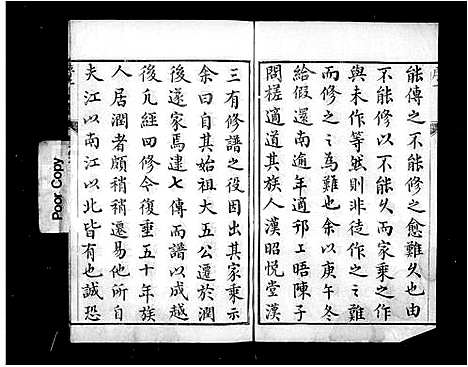 序一
能傳之不能修之愈難久也由
不能修以不能久而家乘之作
與未作等然則非徒作之之難
而修之之為難也余以庚午冬
給假還南逾年適邗工晤陳子
問槎適道其族人漢昭悅堂漢
三有修譜之役因出其家乘示
余曰自其始祖大五公遷於潤
後遂家焉逮七傳而譜以成越
後凡經四修今復重五十年族
人居潤者頗稍稍遷易他所自
夫江以南江以北皆有也誠恐
Poor Copy